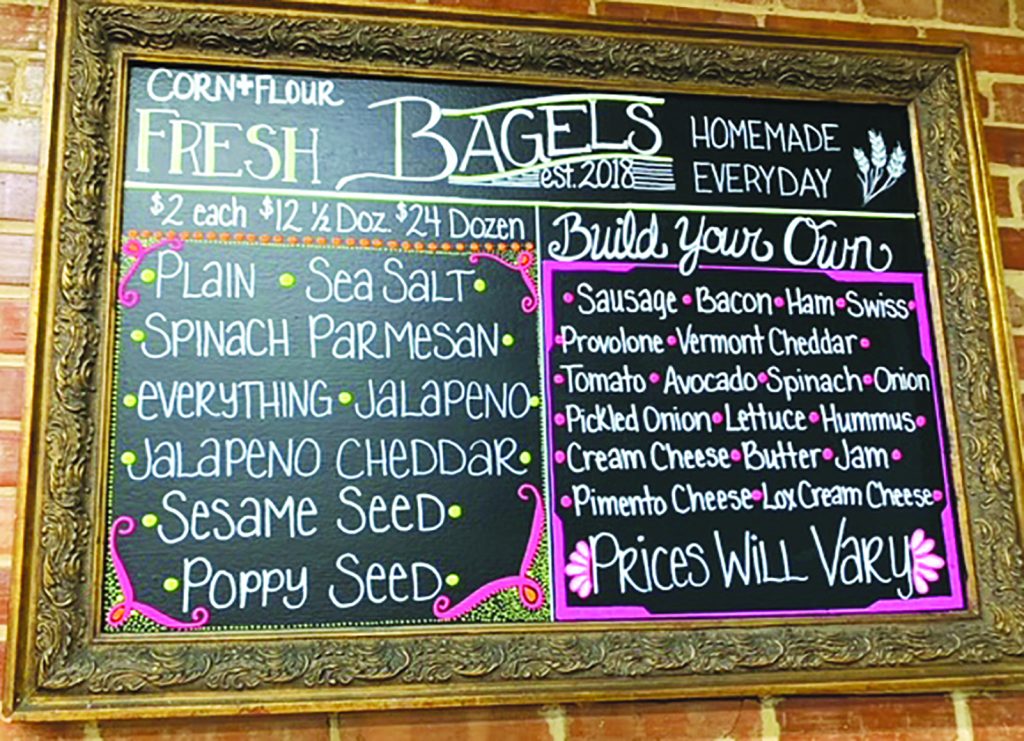 CORN+FLOUR
FRESH BAGELS HOMEMADE
est. 2018 EVERYDAY
$2 each $12 ½ Doz. $24 Dozen
PLAIN • SEA SALT •
• SPINACH PARMESAN •
• EVERYTHING • JALAPENO •
• JALAPENO CHEDDAR •
• SESAME SEED •
• POPPY SEED •
Build Your Own
• Sausage • Bacon • Ham • Swiss •
• Provolone • Vermont Cheddar •
• Tomato • Avocado • Spinach • Onion
• Pickled Onion • Lettuce • Hummus •
• Cream Cheese • Butter • Jam •
• Pimento Cheese • Lox Cream Cheese •
PRICES WILL VARY